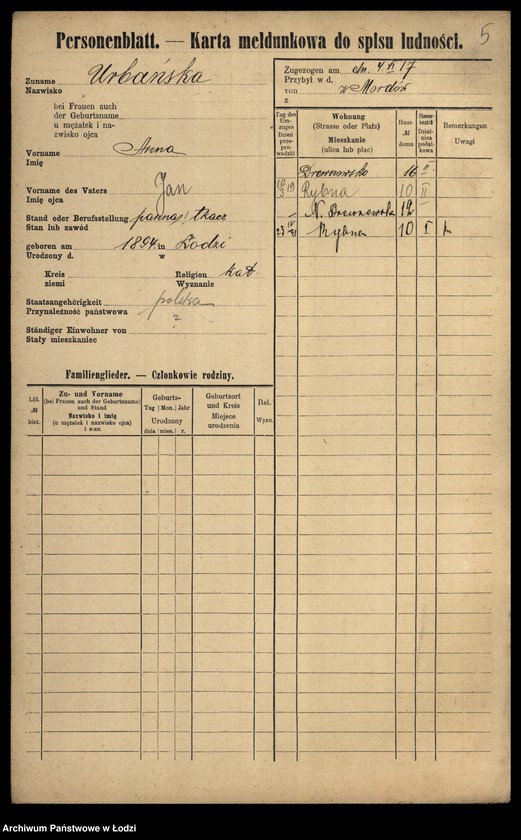 Personenblatt. — Karta meldunkowa do spisu ludności.
5
Zuname Urbańska
Nazwisko
bei Frauen auch
der Geburtsname
u mężatek i na-
zwisko ojca
Vorname Anna
Imię
Vorname des Vaters Jan
Imię ojca
Stand oder Berufsstellung panna / tkacz
Stan lub zawód
geboren am 1894 in Łodzi
Urodzony d. w
Kreis Religion kat
ziemi Wyznanie
Staatsangehörigkeit polska
Przynależność państwowa ?
Ständiger Einwohner von
Stały mieszkaniec
Familienglieder. — Członkowie rodziny.
Lfd.
№
bież.
Zu- und Vorname
(bei Frauen auch der Geburtsname)
und Stand
Nazwisko i imię
(u mężatek i nazwisko ojca)
i stan
Geburts-
Tag Mon. Jahr
Urodzony
dnia mies. r.
Geburtsort
und Kreis
Miejsce
urodzenia
Rel.
Wyzn.
Zugezogen am dn. 4 XI 17
Przybył w d.
von z Mordów
z
Tag des
Um-
zuges
Dzień
prze-
prowadzki
Wohnung
(Strasse oder Platz)
Mieszkanie
(ulica lub plac)
Haus
№
domu
Steuer-
bezirk
Dziel-
nica
podat-
kowa
Bemerkungen
Uwagi
Drewnowska 16 II
19 Rybna 10 II
N. Drewnowska 12
23 IV 21 Rybna 10 I
Archiwum Państwowe w Łodzi